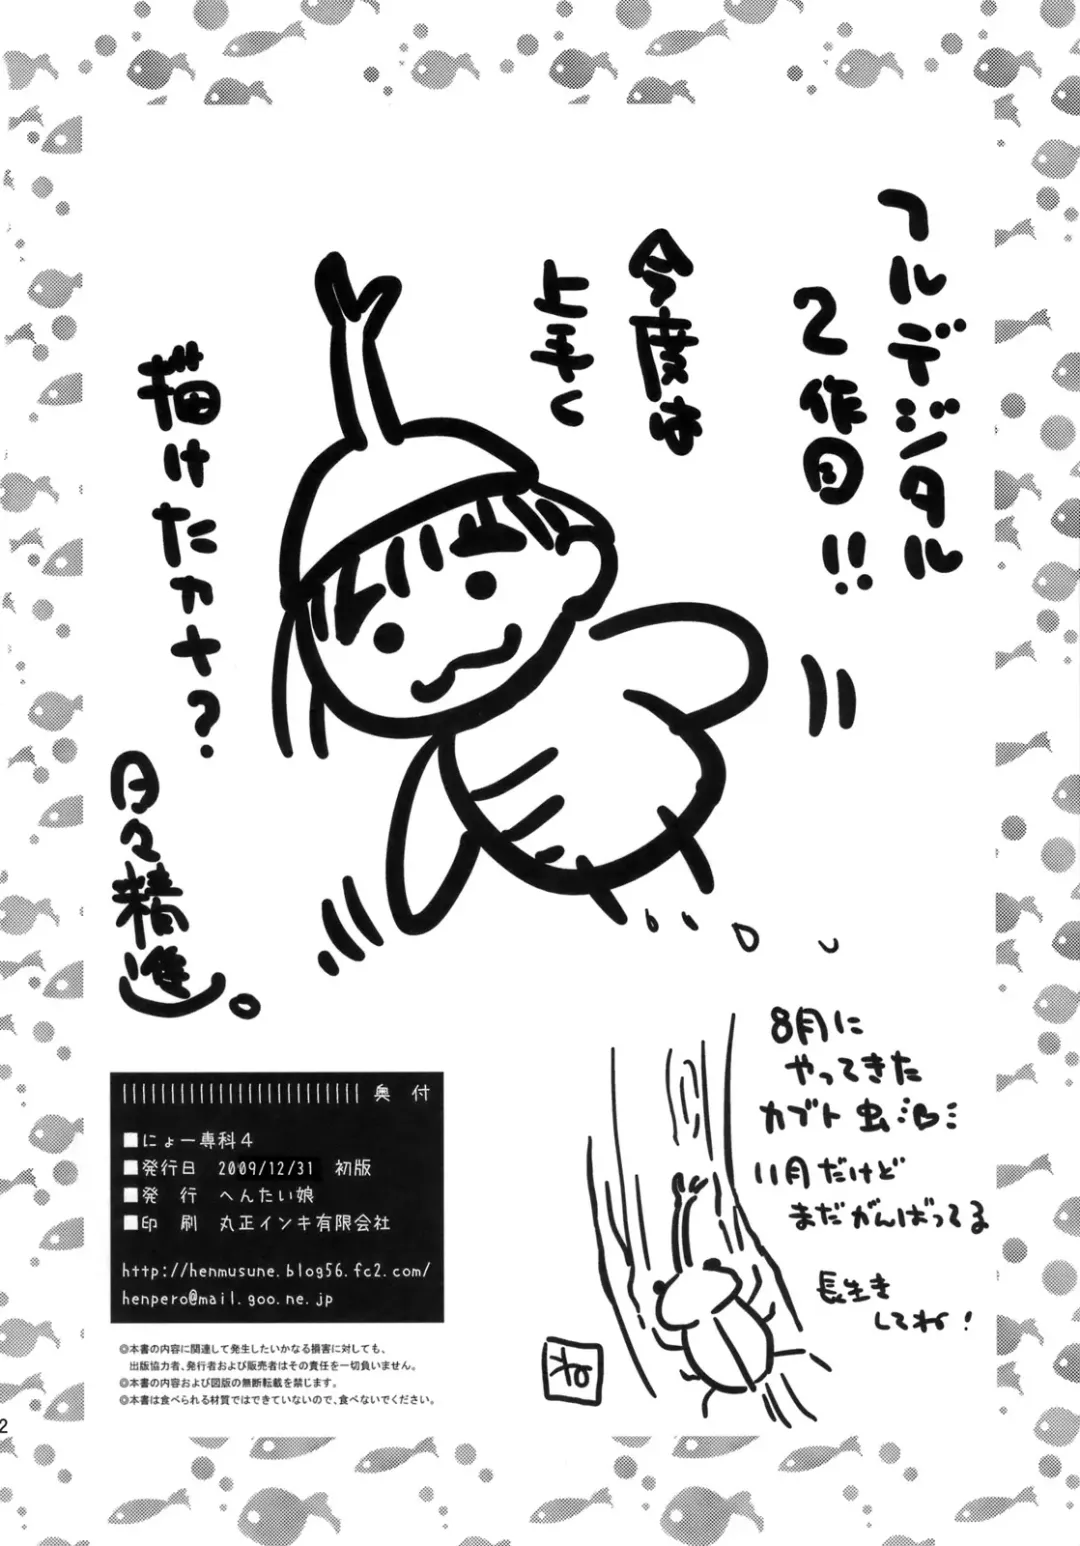 フルデジタル
2作目!!
今度は
上手く
描けたカナ?
日々精進。
8月に
やってきた
カブト虫
11月だけど
まだがんばってる
長生き
してね!
ね
奥 付
■にょー専科4
■発行日 2009/12/31 初版
■発 行 へんたい娘
■印 刷 丸正インキ有限会社
http://henmusune.blog56.fc2.com/
henpero@mail.goo.ne.jp
◎本書の内容に関連して発生したいかなる損害に対しても、
出版協力者、発行者および販売者はその責任を一切負いません。
◎本書の内容および図版の無断転載を禁じます。
◎本書は食べられる材質ではできていないので、食べないでください。
2